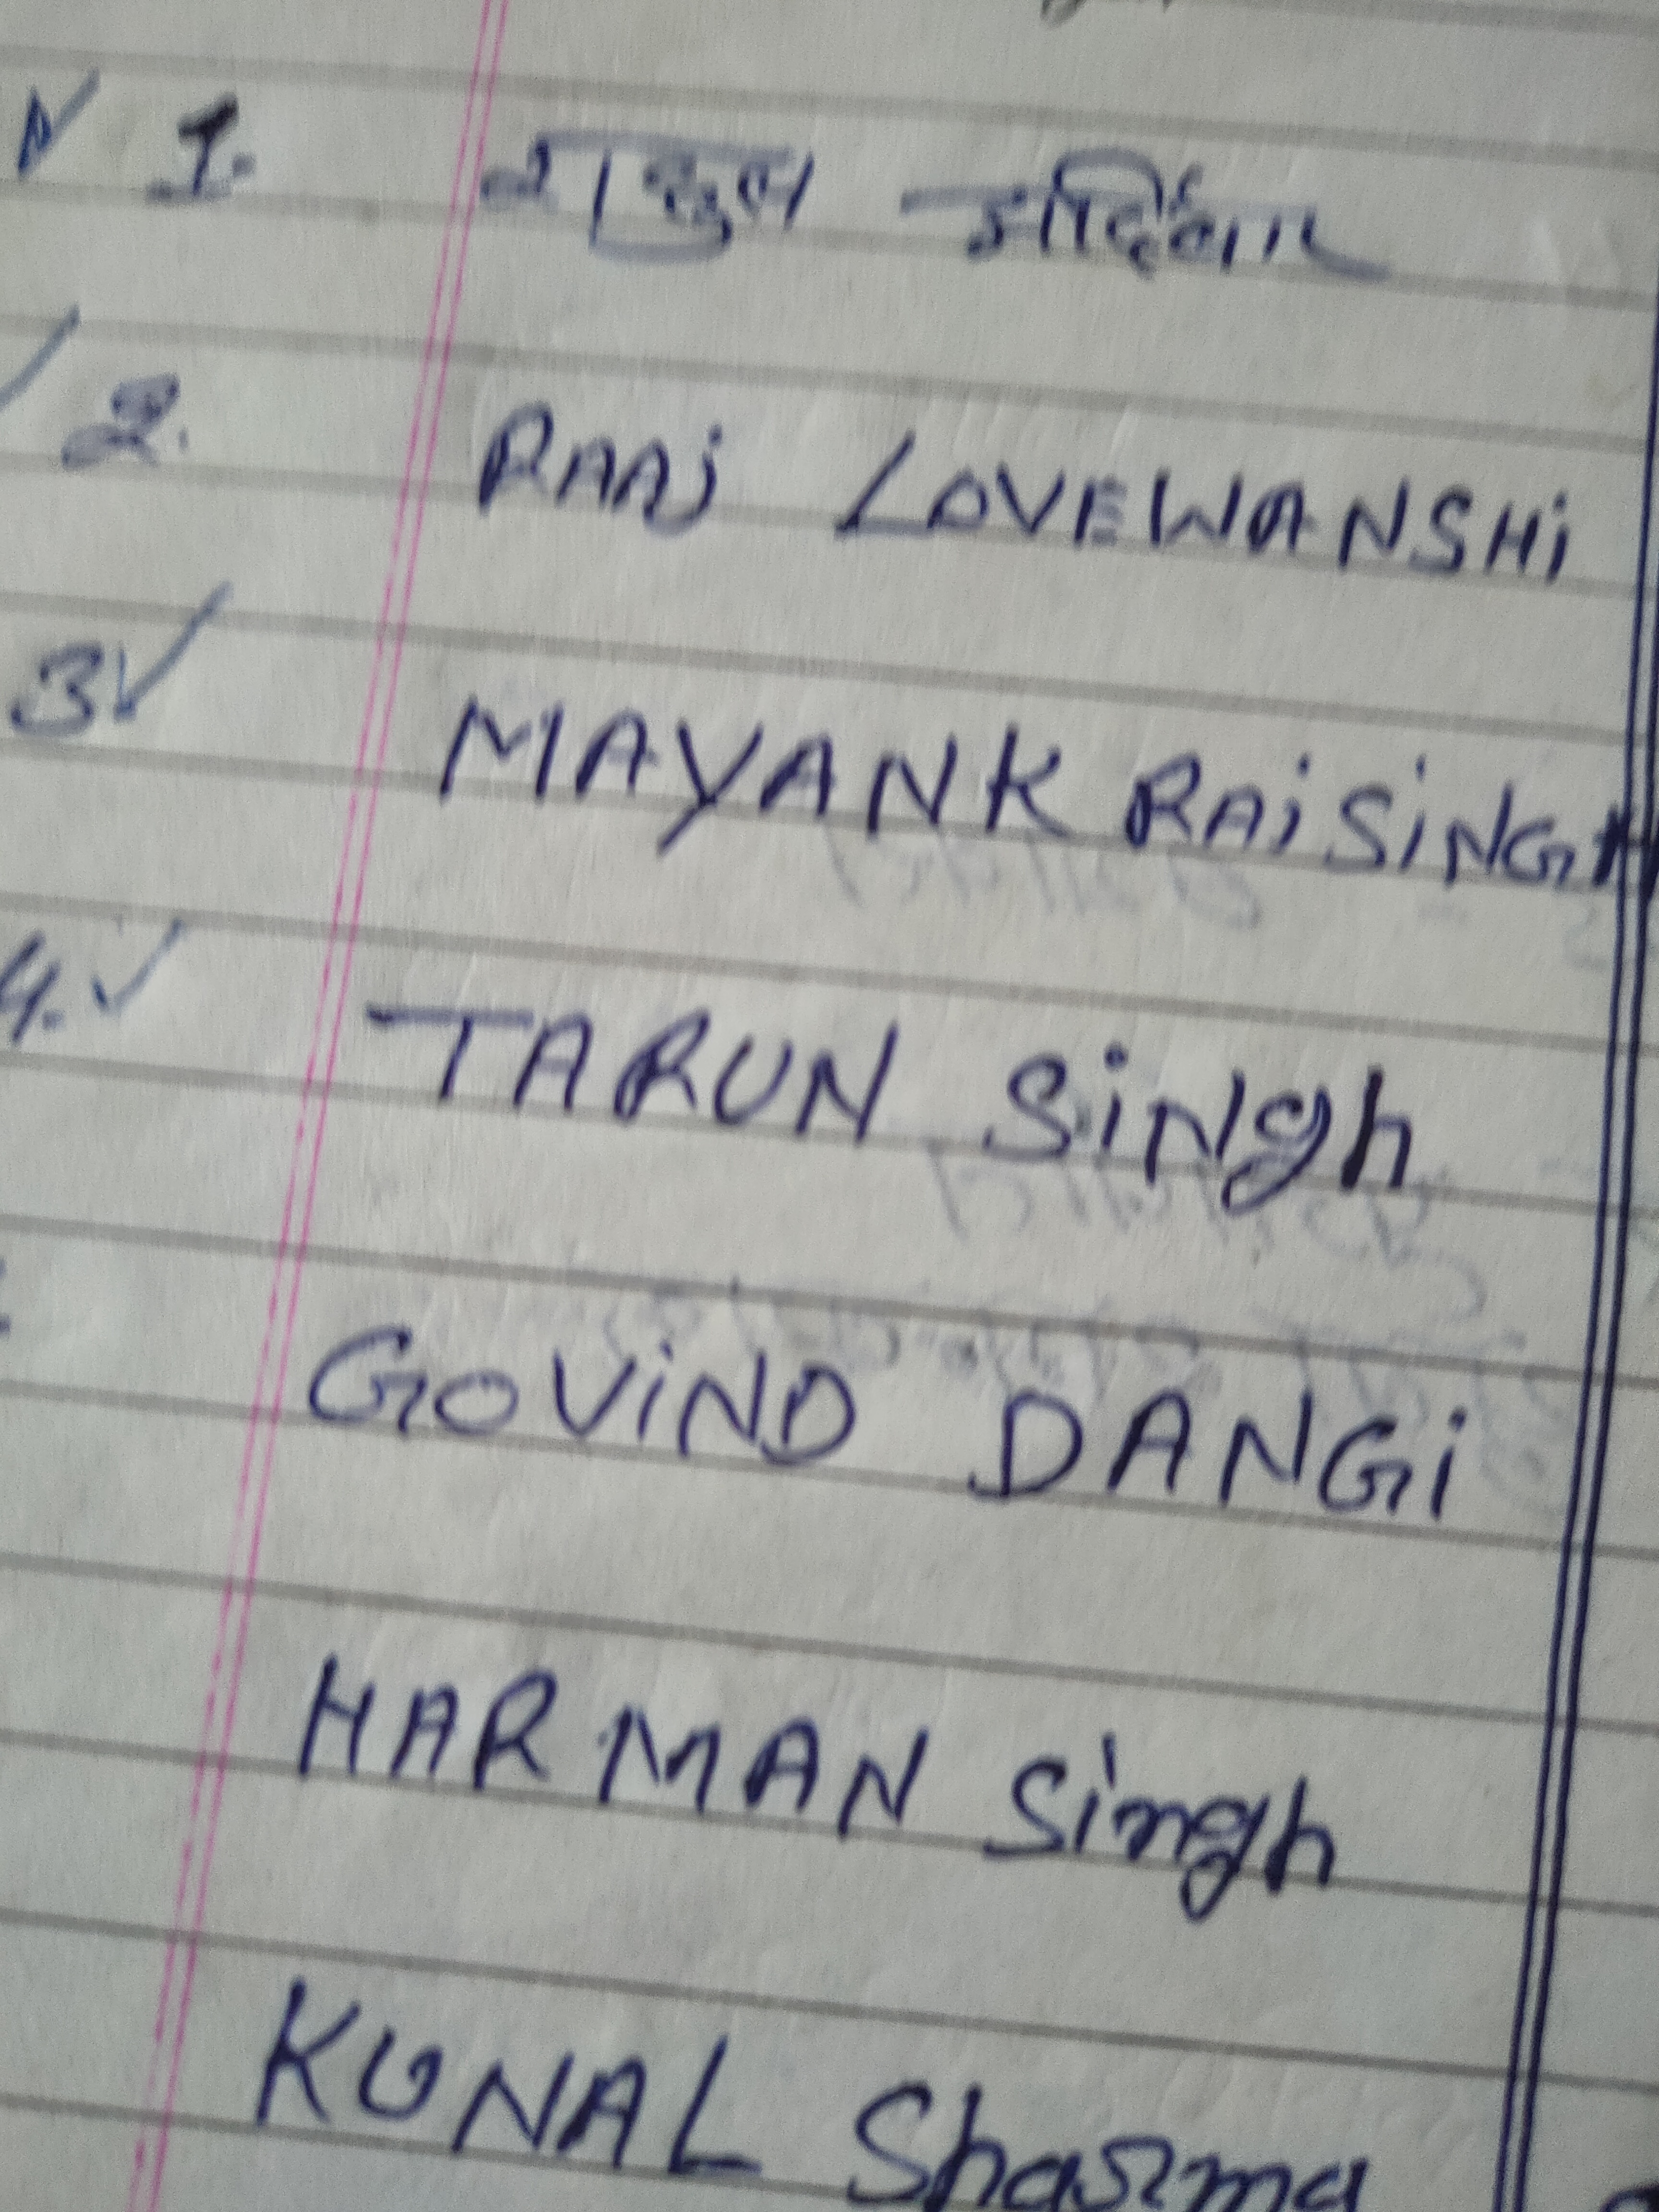 1. राहुल
2. RAAj LOVEWANSHi
3 MAYANK RAiSiNGH
4. TARUN SiNgh
GOViND DANGi
HARMAN Singh
KUNAL Sharma